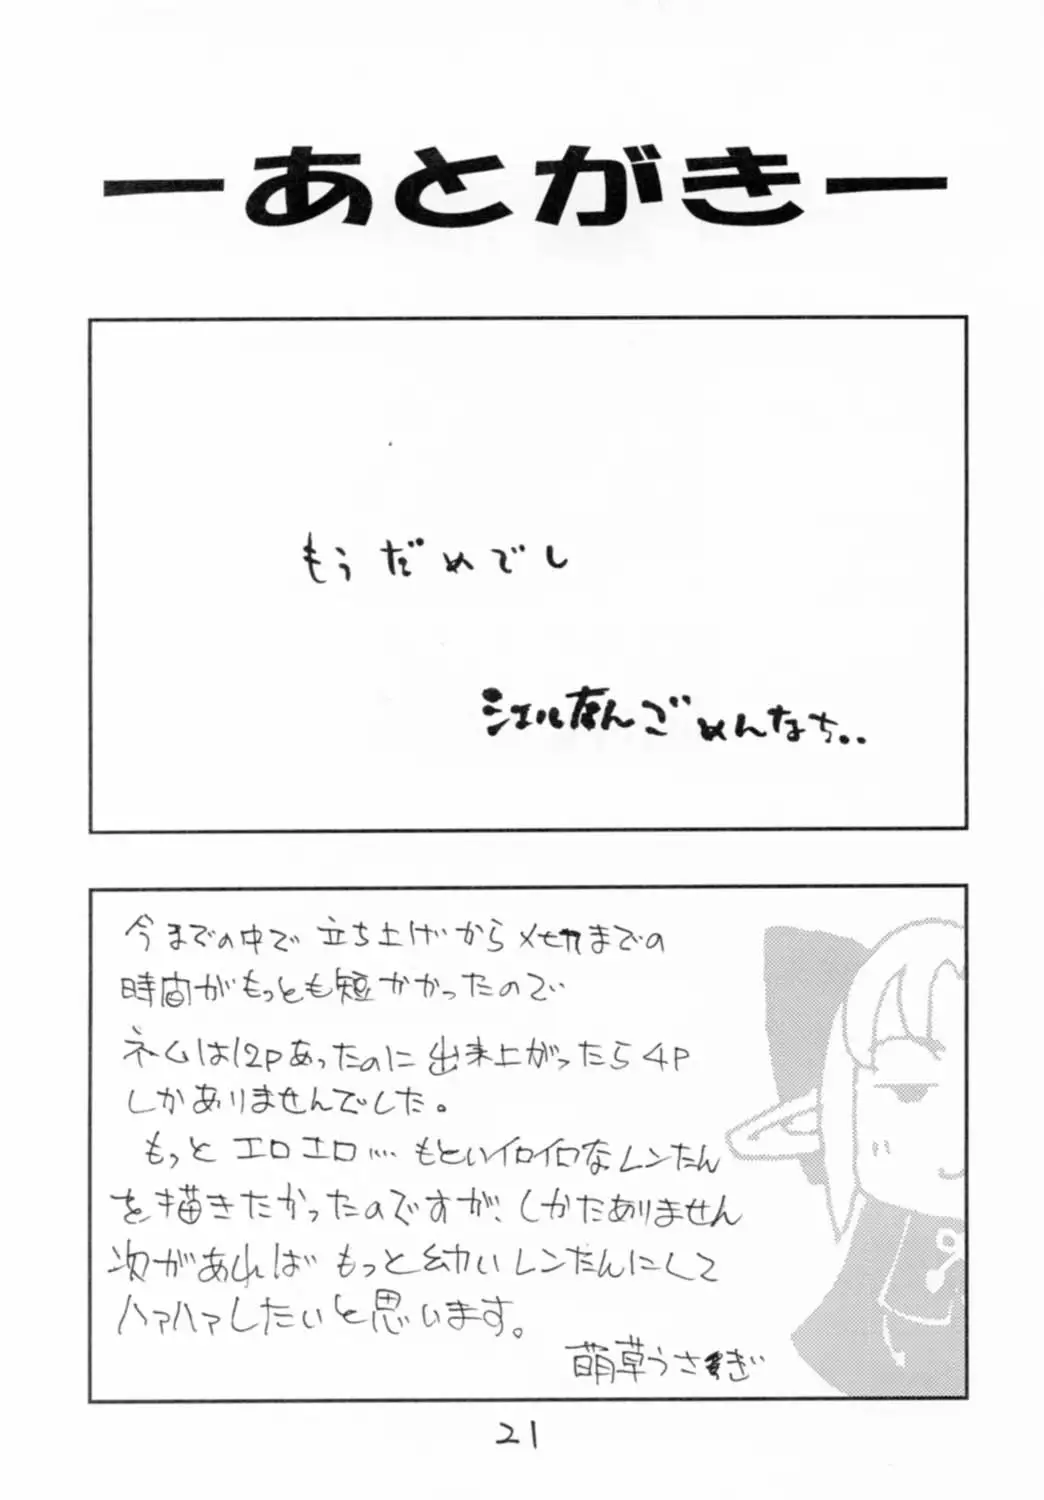 ーあとがきー
もうだめでし
シエルたんごめんなち..
今までの中で立ち上げからメセカまでの
時間がもっとも短かかったので
ネームは12Pあったのに出来上がったら4P
しかありませんでした。
もっとエロエロ…もといイロイロなレンたん
を描きたかったのですが、しかたありません
次があればもっと幼いレンたんにして
ハァハァしたいと思います。
萌草うさぎ
21